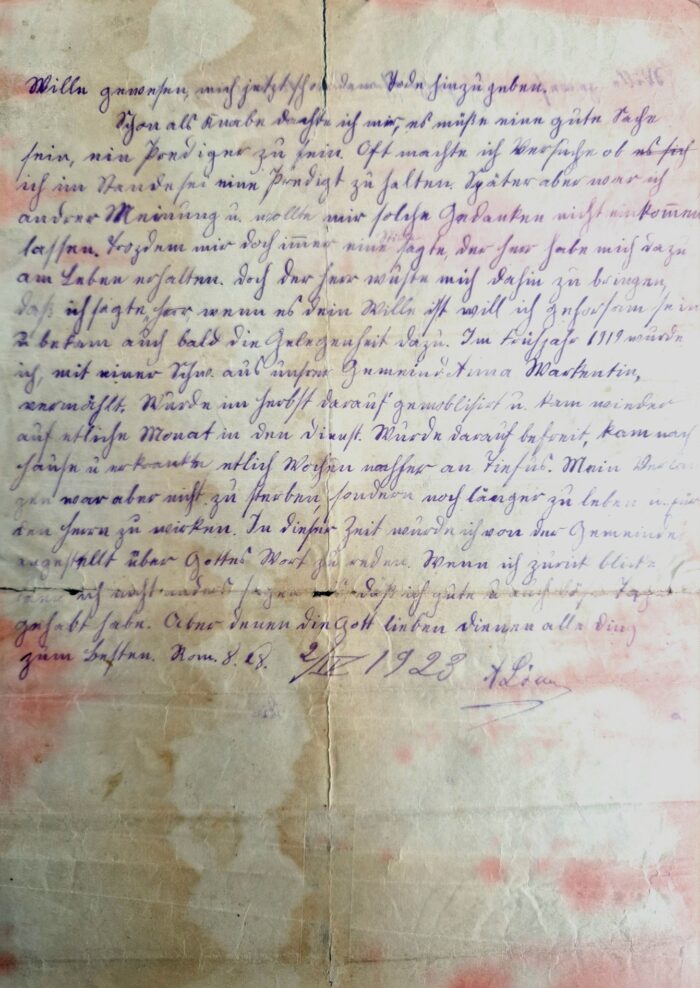 Wille gewesen, mich jetzt schon dem Tode hinzugeben.
Schon als Knabe dachte ich mir, es müße eine gute Sache
sein, ein Prediger zu sein. Oft machte ich Versuche ob es sich
ich im Stande sei eine Predigt zu halten. Später aber war ich
andrer Meinung u. wollte mir solche Gedanken nicht einkommen
lassen. Trozdem mir doch immer eine Stimme sagte, der Herr habe mich dazu
am Leben erhalten. Doch der Herr wußte mich dahin zu bringen,
daß ich sagte, Herr wenn es dein Wille ist will ich gehorsam sein
u bekam auch bald die Gelegenheit dazu. Im Frühjahr 1919 wurde
ich, mit einer Schw. aus unsrer Gemeinde Anna Warkentin,
vermählt. Wurde im Herbst darauf gemobilisirt u. kam wieder
auf etliche Monat in den Dienst. Wurde darauf befreit, kam nach
Hause u erkrankte etlich Wochen nachher an Tiefus. Mein Verlan
gen war aber nicht zu sterben, sondern noch länger zu leben u. für
den Herrn zu wirken. In dieser Zeit wurde ich von der Gemeinde
angestellt über Gottes Wort zu reden. Wenn ich zurük blicke
ich nicht anders sagen daß ich gute u auch böse Tage
gehabt habe. Aber denen die Gott lieben dienen alle Ding
zum Besten. Rom. 8. 28. 2/IV 1923 A Löwen